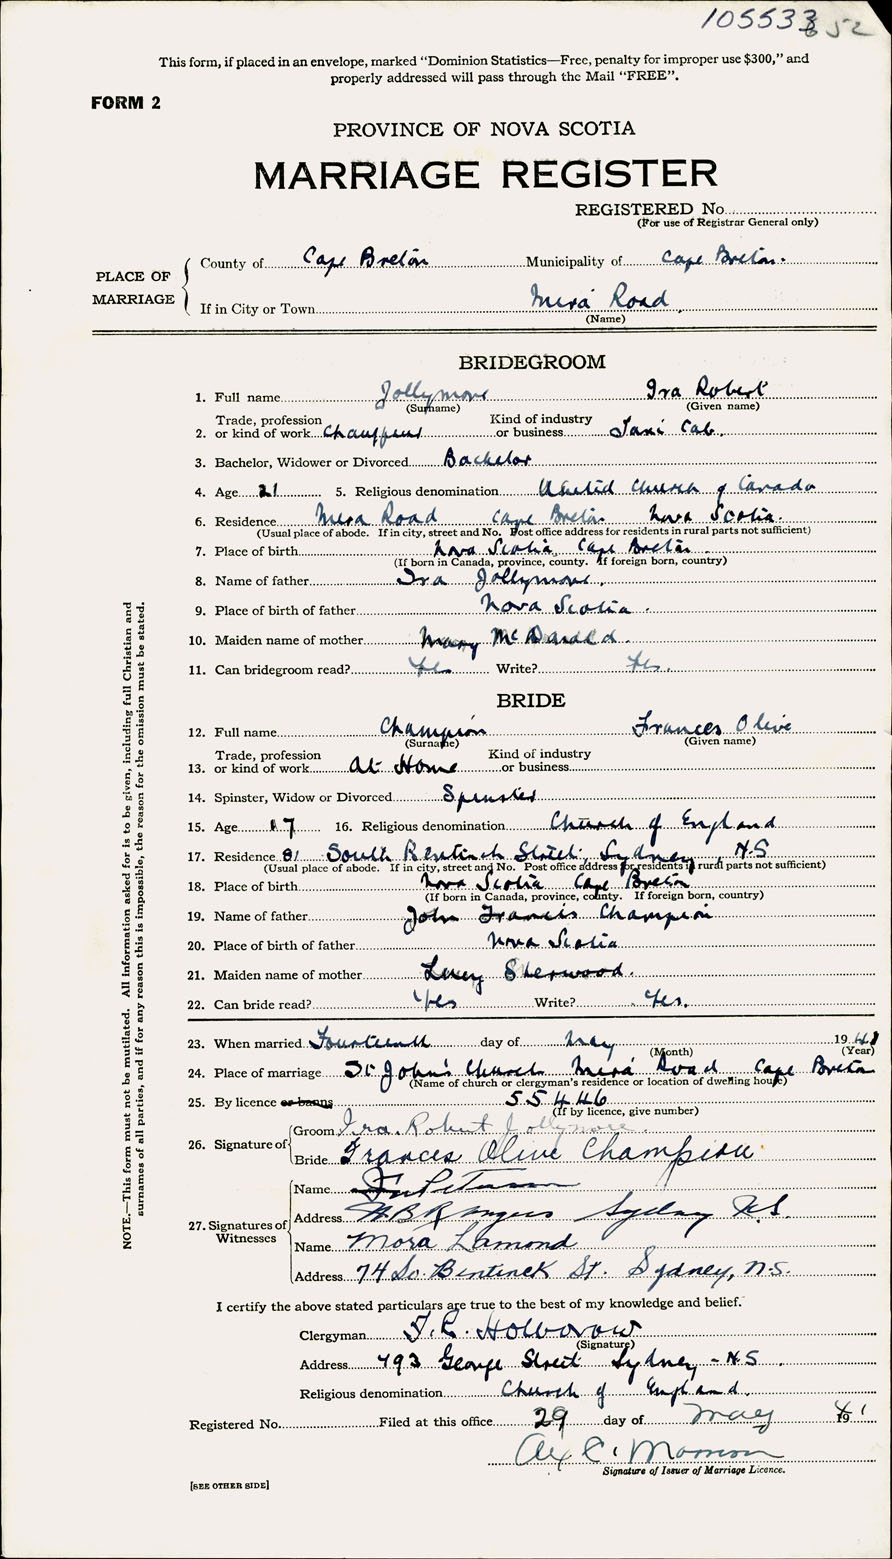 105533
652
This form, if placed in an envelope, marked "Dominion Statistics—Free, penalty for improper use $300," and
properly addressed will pass through the Mail "FREE".
FORM 2
PROVINCE OF NOVA SCOTIA
MARRIAGE REGISTER
REGISTERED No.
(For use of Registrar General only)
PLACE OF MARRIAGE
County of Cape Breton Municipality of Cape Breton.
If in City or Town Mira Road
(Name)
BRIDEGROOM
1. Full name Jollymore Ira Robert
(Surname) (Given name)
Trade, profession Kind of industry
2. or kind of work Chauffeur or business Taxi Cab.
3. Bachelor, Widower or Divorced Bachelor
4. Age 21 5. Religious denomination United Church of Canada
6. Residence Mira Road Cape Breton Nova Scotia.
(Usual place of abode. If in city, street and No. Post office address for residents in rural parts not sufficient)
7. Place of birth Nova Scotia, Cape Breton
(If born in Canada, province, county. If foreign born, country)
8. Name of father Ira Jollymore.
9. Place of birth of father Nova Scotia.
10. Maiden name of mother Mary McDonald.
11. Can bridegroom read? Yes Write? Yes.
BRIDE
12. Full name Champion Frances Olive
(Surname) (Given name)
Trade, profession Kind of industry
13. or kind of work At Home or business
14. Spinster, Widow or Divorced Spinster
15. Age 17 16. Religious denomination Church of England
17. Residence 81 South Bentinck Street, Sydney, N.S
(Usual place of abode. If in city, street and No. Post office address for residents in rural parts not sufficient)
18. Place of birth Nova Scotia Cape Breton
(If born in Canada, province, county. If foreign born, country)
19. Name of father John Francis Champion
20. Place of birth of father Nova Scotia
21. Maiden name of mother Sherwood.
22. Can bride read? Yes Write? Yes.
23. When married Fourteenth day of May 1941
(Month) (Year)
24. Place of marriage St John's Church Mira Road Cape Breton
(Name of church or clergyman's residence or location of dwelling house)
25. By licence or banns 55446
(If by licence, give number)
26. Signature of
Groom Ira Robert Jollymore.
Bride Frances Olive Champion
27. Signatures of Witnesses
Name
Address Sydney N.S.
Name Mora Lamond
Address 74 So. Bentinck St. Sydney, N.S.
I certify the above stated particulars are true to the best of my knowledge and belief.
Clergyman
(Signature)
Address 493 George Street Sydney - N.S.
Religious denomination Church of England.
Registered No. Filed at this office 29 day of May 1941
Alex C.
Signature of Issuer of Marriage Licence.
[SEE OTHER SIDE]
NOTE.—This form must not be mutilated. All information asked for is to be given, including full Christian and
surnames of all parties, and if for any reason this is impossible, the reason for the omission must be stated.